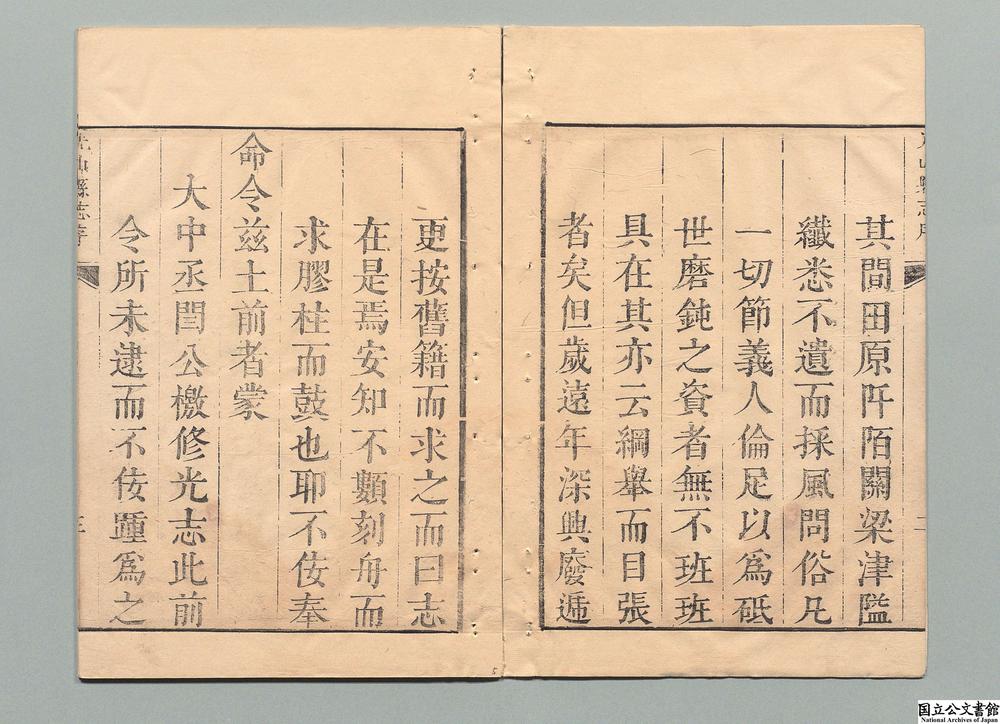 其間田原阡陌關梁津隘
纖悉不遺而採風問俗凡
一切節義人倫足以爲砥
世磨鈍之資者無不班班
具在其亦云綱舉而目張
者矣但歲遠年深興廢遞
更按舊籍而求之而曰志
在是焉安知不類刻舟而
求膠柱而鼓也耶不佞奉
命令兹土前者蒙
大中丞閏公檄修光志此前
令所未逮而不佞踵爲之
光山縣志序
三
国立公文書館
National Archives of Japan